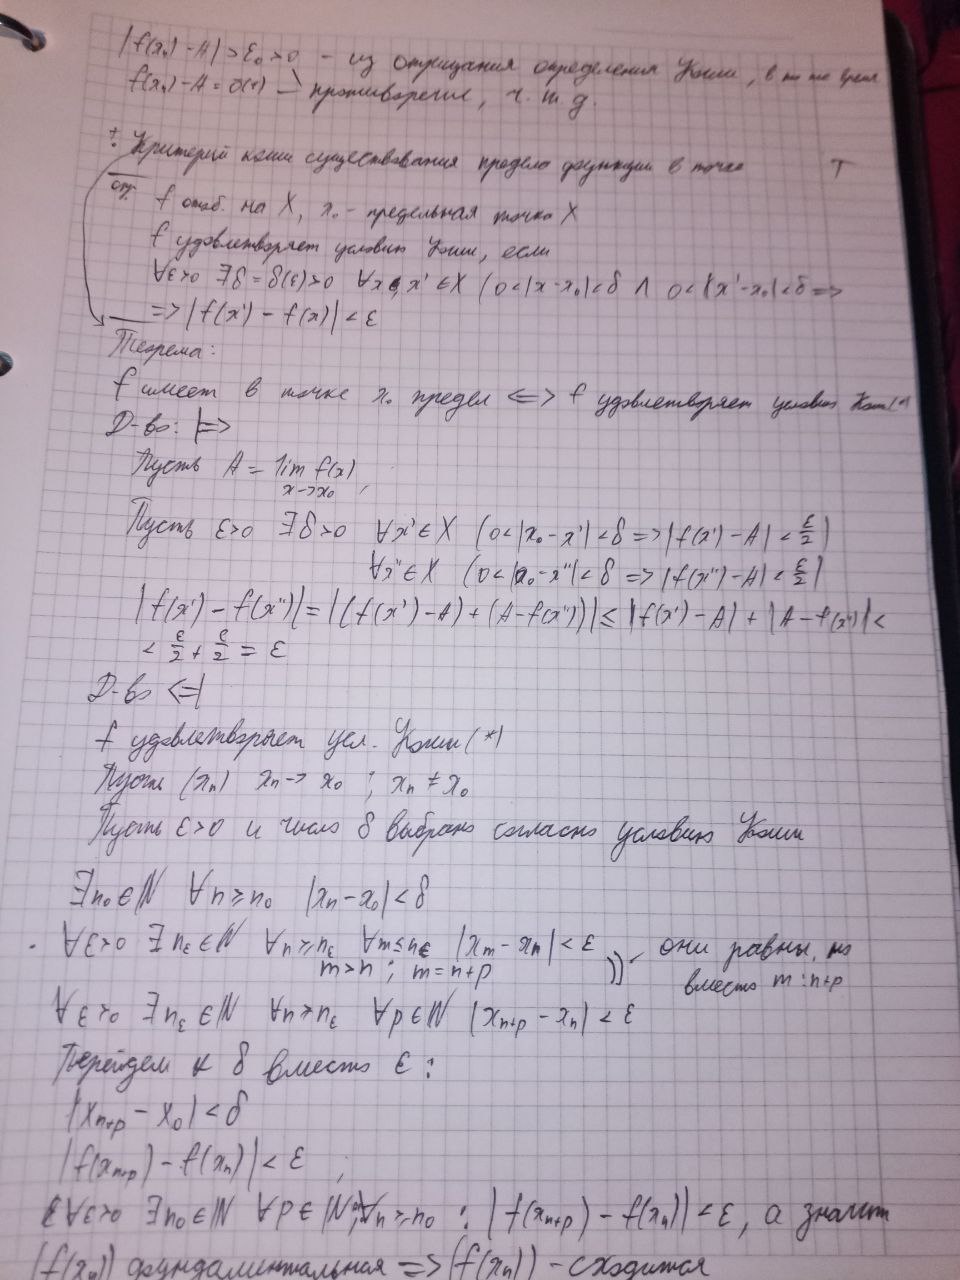 |f(xₙ) - A| > ε₀ > 0 - из отрицания определения Коши, в то же время
f(xₙ) - A = o(1) - противоречие, ч. т. д.
Критерий Коши существования предела функции в точке
опр. f отоб. на X, x₀ - предельная точка X
f удовлетворяет условию Коши, если
∀ε>0 ∃δ = δ(ε)>0 ∀x, x' ∈ X (0<|x-x₀|<δ ∧ 0<|x'-x₀|<δ =>
=> |f(x') - f(x)| < ε
Теорема:
f имеет в точке x₀ предел <=> f удовлетворяет условию Коши (*)
Д-во: |=>
Пусть A = lim f(x),
x->x₀
Пусть ε>0 ∃δ>0 ∀x' ∈ X (0<|x₀-x'|<δ => |f(x') - A| < ε/2)
∀x'' ∈ X (0<|x₀-x''|<δ => |f(x'') - A| < ε/2)
|f(x') - f(x'')| = |(f(x') - A) + (A - f(x''))| ≤ |f(x') - A| + |A - f(x'')| <
< ε/2 + ε/2 = ε
Д-во <=|
f удовлетворяет усл. Коши (*)
Пусть (xₙ) xₙ -> x₀ ; xₙ ≠ x₀
Пусть ε>0 и число δ выбрано согласно условию Коши
∃n₀∈ℕ ∀n≥n₀ |xₙ - x₀| < δ
∀ε>0 ∃n_ε∈ℕ ∀n≥n_ε ∀m≥n_ε |xₘ - xₙ| < ε они равны, но
m>n ; m=n+p вместо m : n+p
∀ε>0 ∃n_ε∈ℕ ∀n≥n_ε ∀p∈ℕ |xₙ₊ₚ - xₙ| < ε
Перейдем к δ вместо ε:
|xₙ₊ₚ - x₀| < δ
|f(xₙ₊ₚ) - f(xₙ)| < ε ;
∀ε>0 ∃n₀∈ℕ ∀p∈ℕ, ∀n≥n₀ : |f(xₙ₊ₚ) - f(xₙ)| < ε, а значит
(f(xₙ)) фундаментальная => (f(xₙ)) - сходится